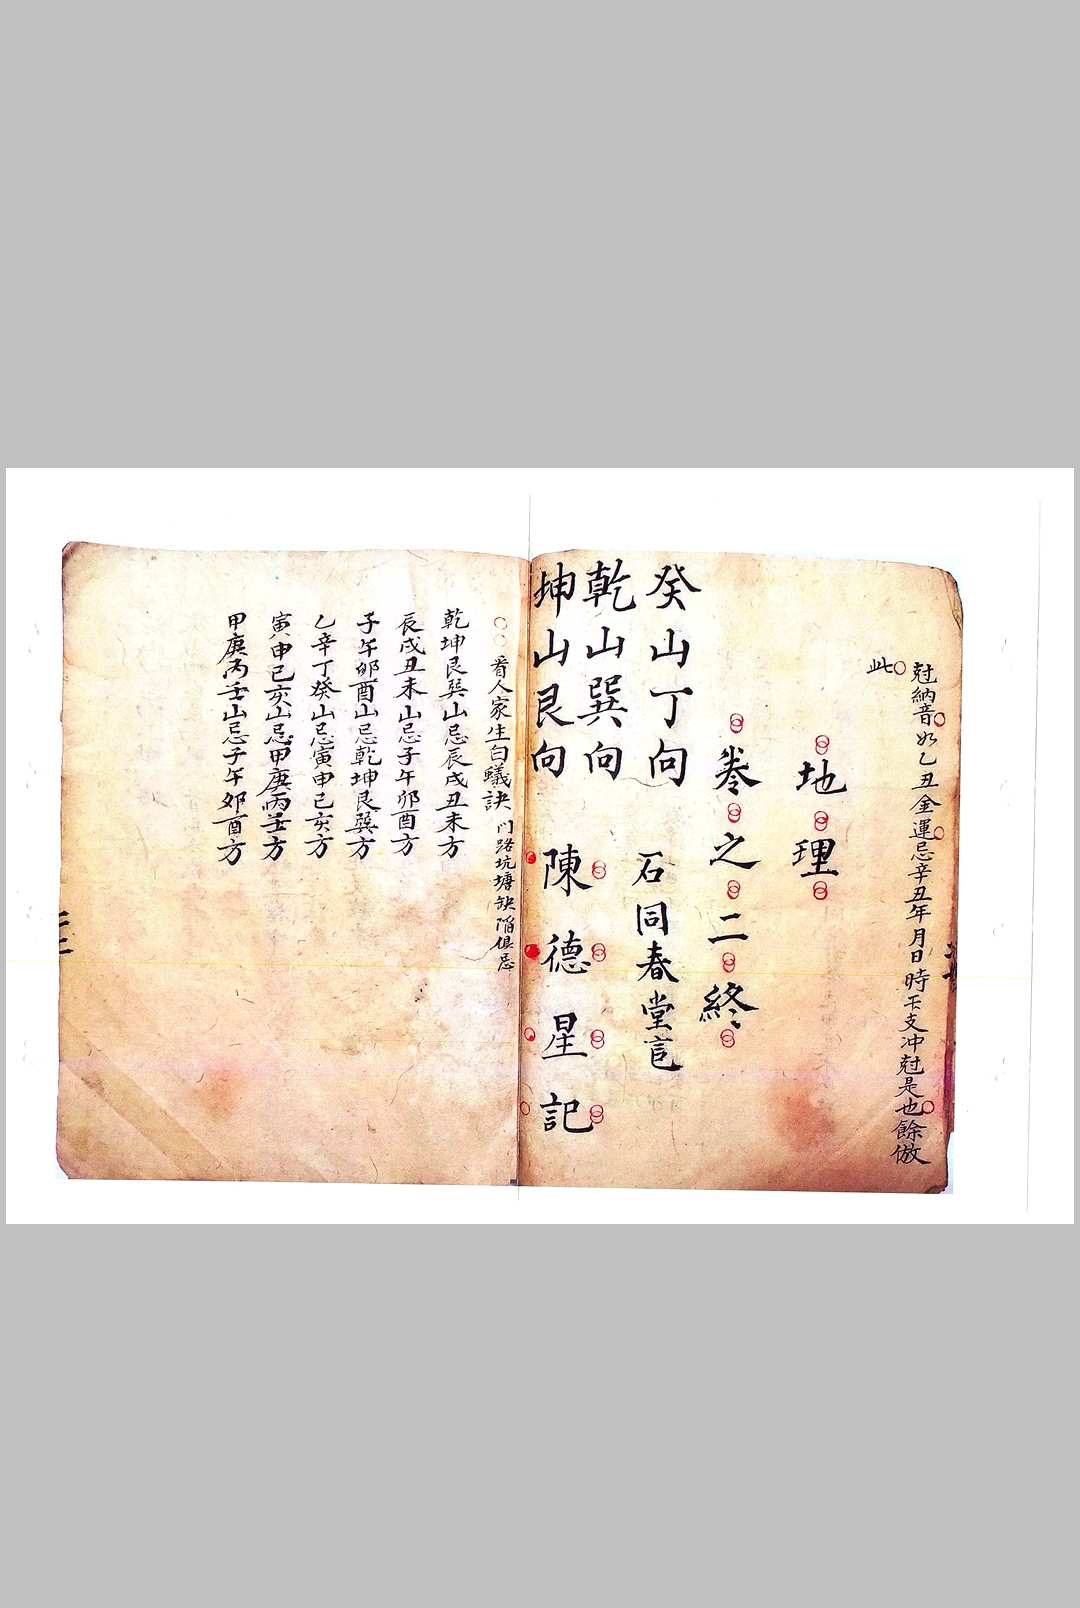 尅納音如乙丑金運忌辛丑年月日時干支冲尅是也餘倣
此
地理
卷之二終
癸山丁向
石同春堂官
乾山巽向
坤山艮向
陳德星記
看人家生白蟻訣 门路坑塘缺陷俱忌
乾坤艮巽山忌辰戌丑未方
辰戌丑未山忌子午卯酉方
子午卯酉山忌乾坤艮巽方
乙辛丁癸山忌寅申已亥方
寅申已亥山忌甲庚丙壬方
甲庚丙壬山忌子午卯酉方